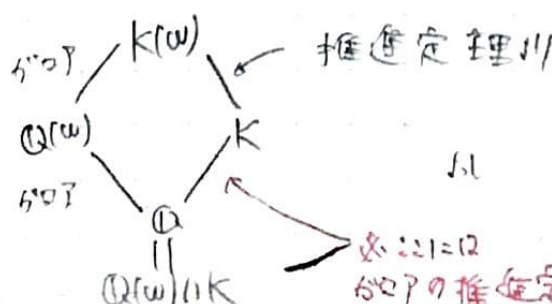 K(ω)
ガロア
推進定理より
Q(ω)
K
ガロア
Q
Q(ω)∩K
※ ここには
ガロアの推進定